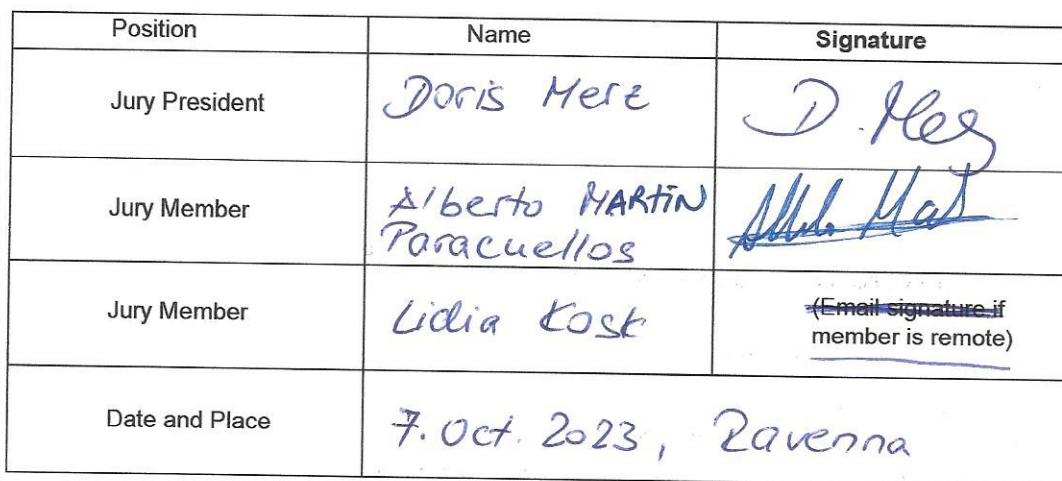 Position Name Signature
Jury President Doris Merz D. Merz
Jury Member Alberto MARTiN
Paracuellos
Jury Member Lidia Kosk (Email signature if
member is remote)
Date and Place 7. Oct. 2023, Ravenna